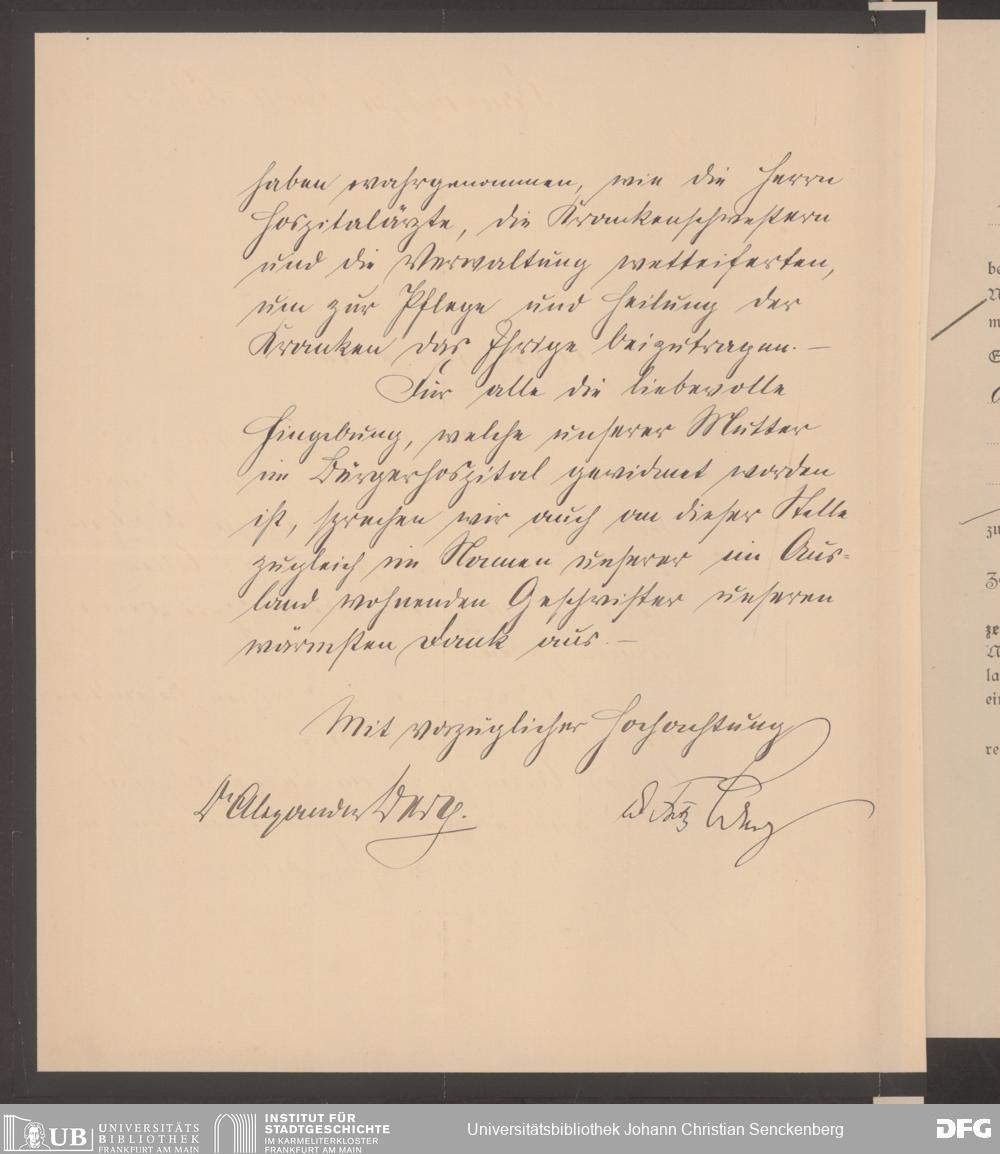 haben wahrgenommen, wie die Herrn
Hospitalärzte, die Krankenschwestern
und die Verwaltung wetteiferten,
um zur Pflege und Heilung der
Kranken das Ihrige beizutragen. —
Für alle die liebevolle
Hingebung, welche unserer Mutter
im Bürgerhospital gewidmet worden
ist, sprechen wir auch an dieser Stelle
zugleich im Namen unserer im Aus-
land wohnenden Geschwister unseren
wärmsten Dank aus. —
Mit vorzüglicher Hochachtung
Dr Alexander Berg.
Dr Fritz Berg
UB UNIVERSITÄTS
BIBLIOTHEK
FRANKFURT AM MAIN
INSTITUT FÜR
STADTGESCHICHTE
IM KARMELITERKLOSTER
FRANKFURT AM MAIN
Universitätsbibliothek Johann Christian Senckenberg
DFG